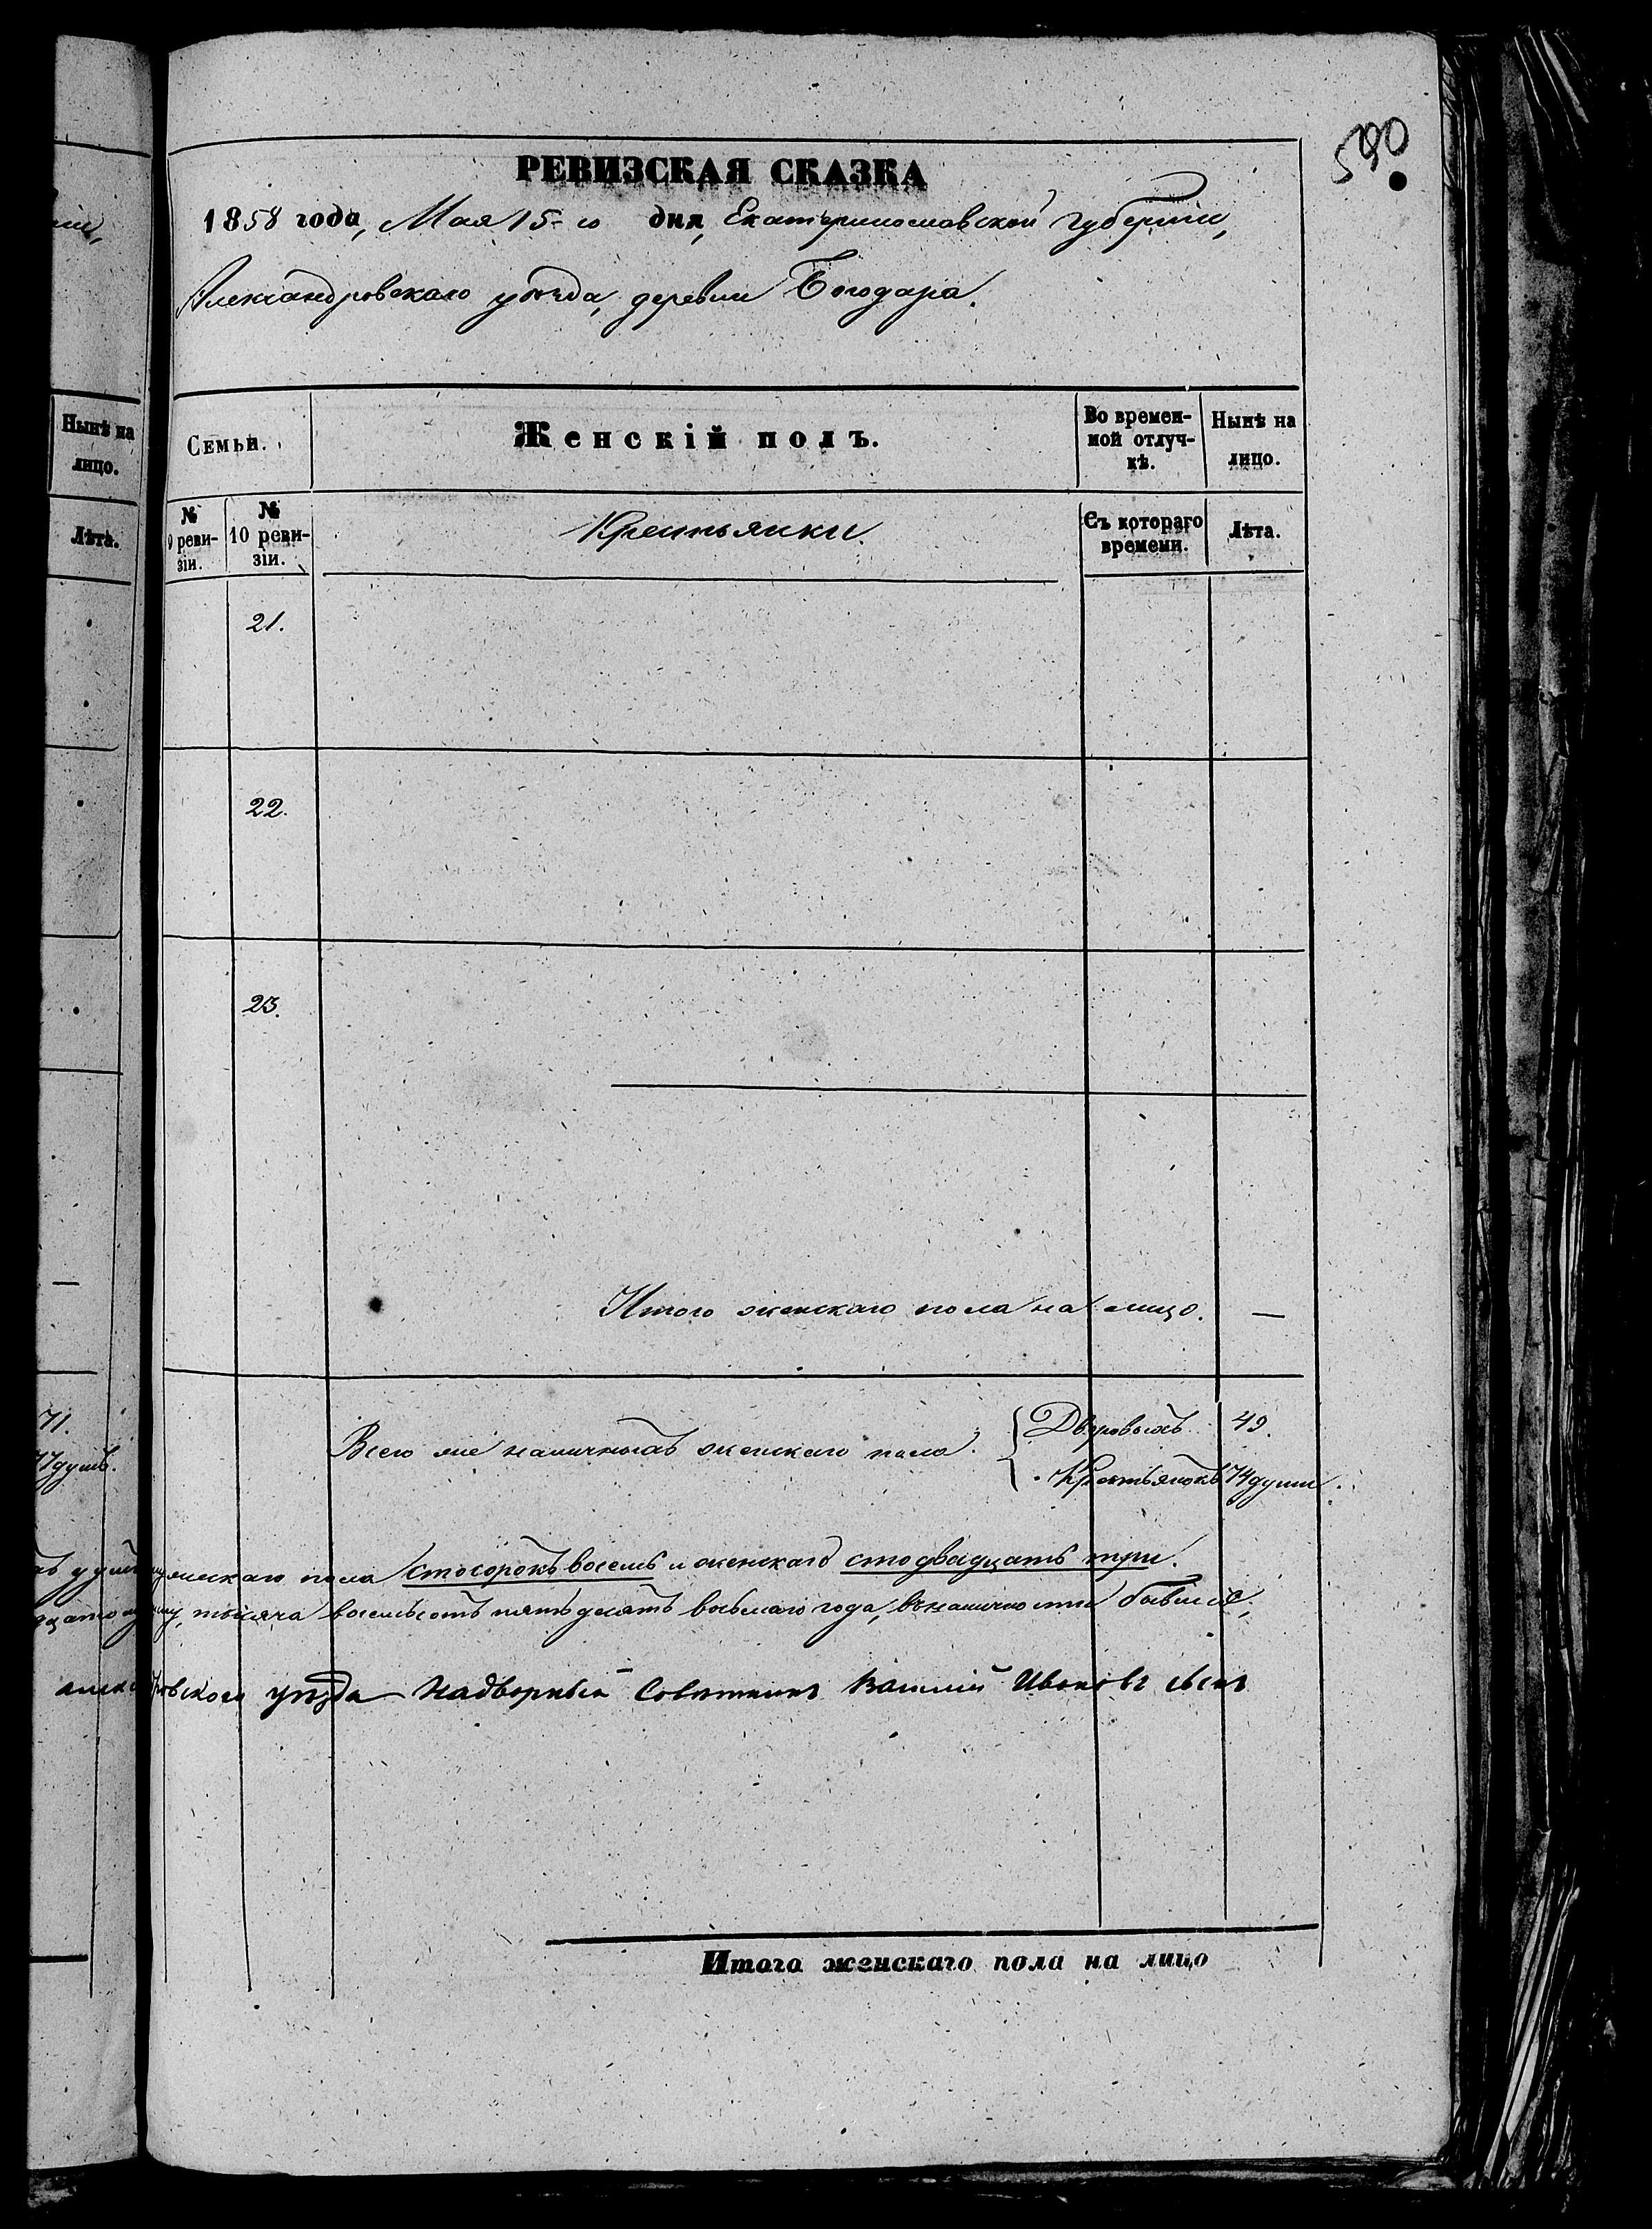 590
РЕВИЗСКАЯ СКАЗКА
1858 года, Мая 15-го дня, Екатеринославской губерніи,
Александровскаго уѣзда, деревни Богодара.
Нынѣ на лицо.
Лѣта.
Семьи.
Женскій полъ.
Во времен-
ной отлуч-
кѣ.
Нынѣ на
лицо.
№
9 реви-
зіи.
№
10 реви-
зіи.
Крестьянки.
Съ котораго
времени.
Лѣта.
21.
22.
23.
Итого женскаго пола на лицо. —
71.
77 душъ.
Всего же наличныхъ женскаго пола. { Дворовыхъ 49.
Крестьянокъ 74 души.
пола сто сорокъ восемь и женскаго сто двадцать три.
тысяча восемьсотъ пятьдесятъ восьмаго года, въ наличности бывшіе,
уѣзда Надворный Совѣтникъ Василій Ивановъ сынъ
Итого женскаго пола на лицо